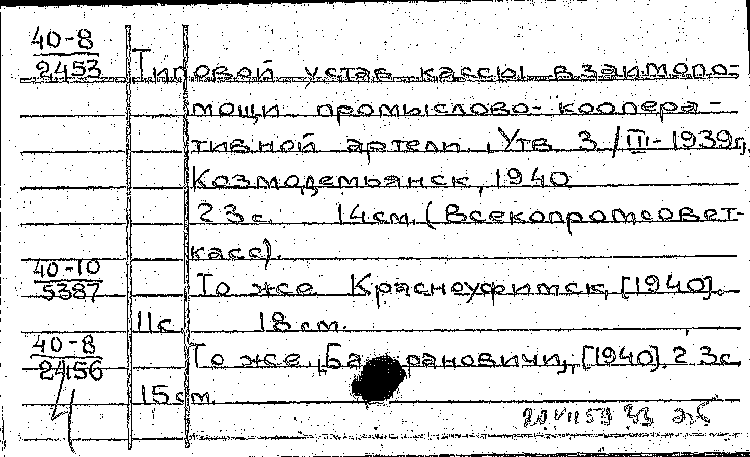 40-8
2453 Типовой устав кассы взаимопо-
мощи промыслово-коопера-
тивной артели. Утв. 3/III-1939г.
Козмодемьянск, 1940
23с. 14см. (Всекопромсовет-
касс).
40-10
5387 То же Красноуфимск, [1940].
11с 18см.
40-8
2456 То же, Барановичи, [1940]. 23с
15см.